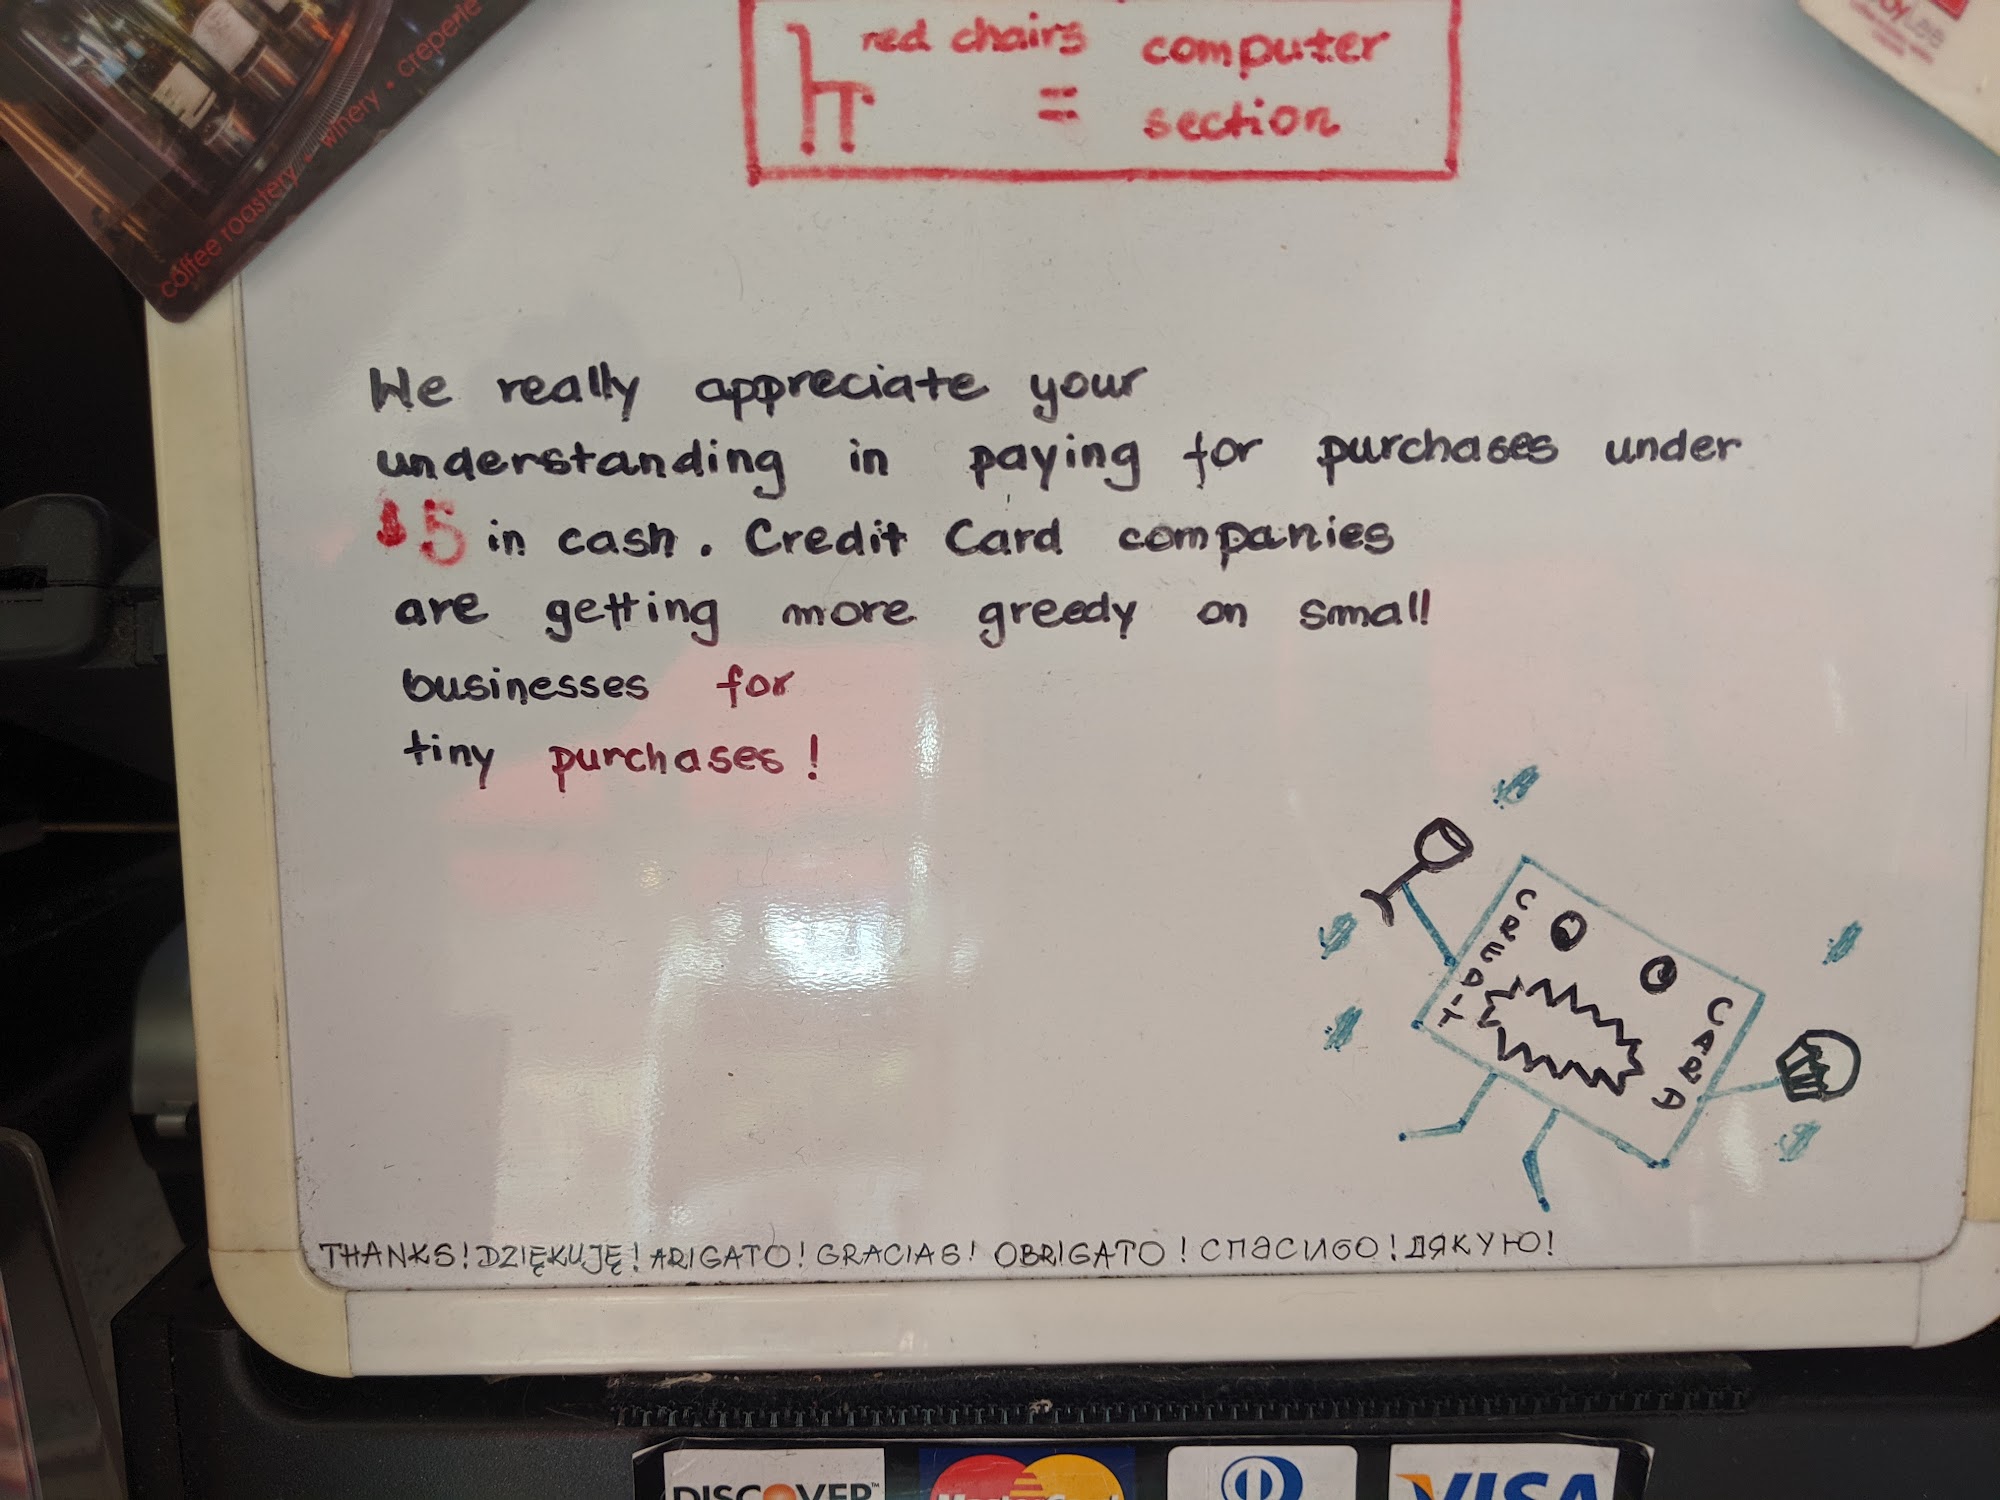 coffee roastery • winery • creperie
red chairs = computer section
We really appreciate your
understanding in paying for purchases under
$5 in cash. Credit Card companies
are getting more greedy on small
businesses for
tiny purchases!
CREDIT
CARD
THANKS! DZIĘKUJĘ! ARIGATO! GRACIAS! OBRIGATO! СПАСИБО! ДЯКУЮ!
DISCOVER™
MasterCard
VISA